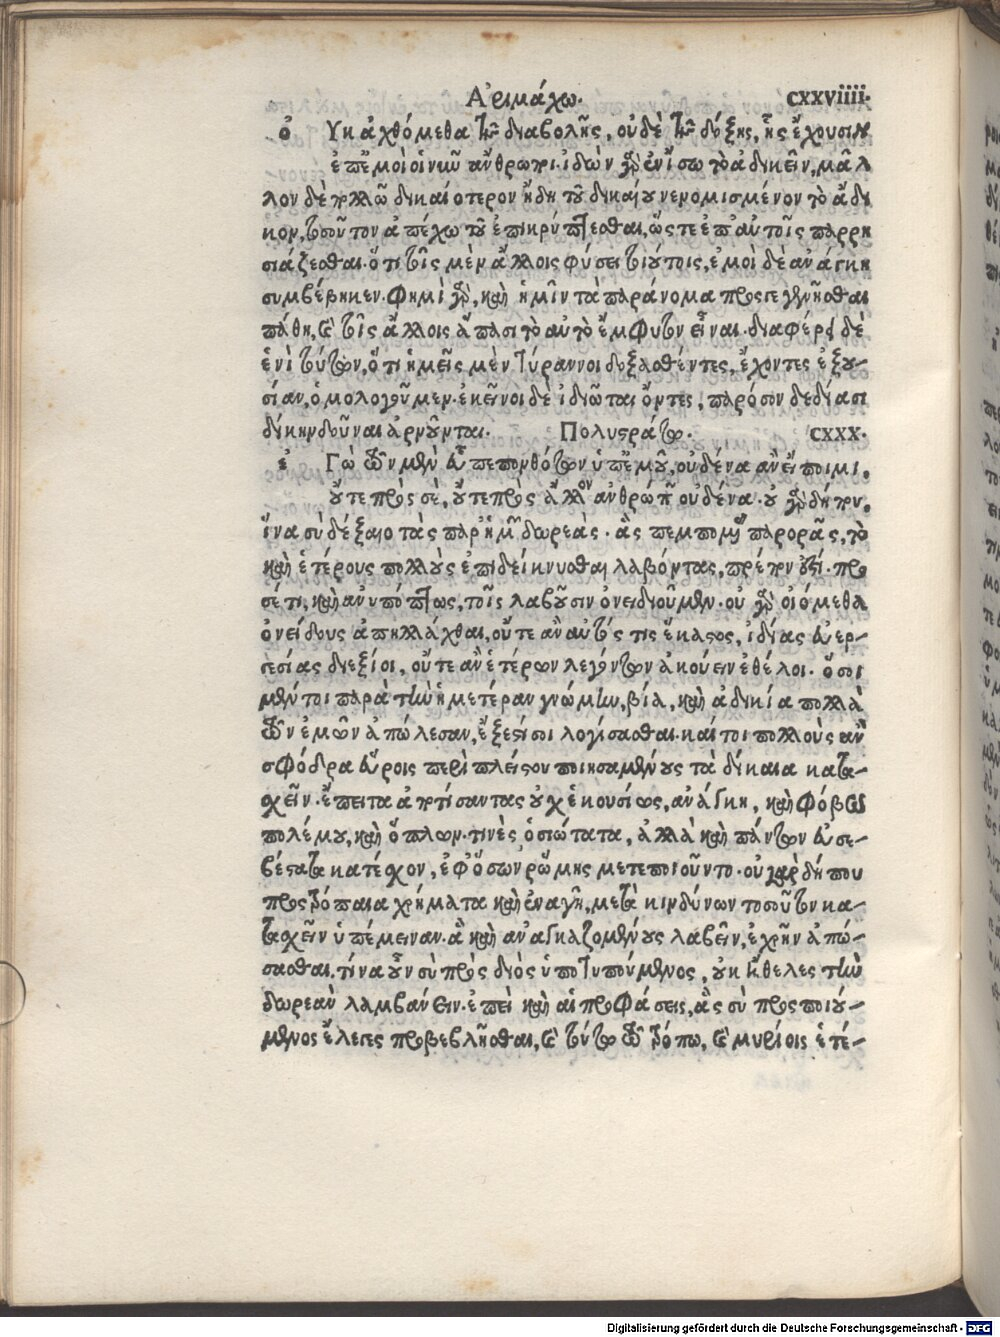 Ἀριμάχῳ. CXXVIIII.
ὀ Υκ ἀχθόμεθα τῆς διαβολῆς, οὐδὲ τῆς δόξης, ἧς ἔχουσιν
ἐπ' ἐμοὶ οἱ νῦν ἄνθρωποι. ἰδὼν γὰρ ἐν ἴσῳ τὸ ἀδικεῖν, μᾶλ
λον δὲ πολλῷ δικαιότερον ἤδη τοῦ δικαίου νενομισμένον τὸ ἄδι
κον, τοσοῦτον ἀπέχω τοῦ ἐπικρύπτεσθαι, ὥστε ἐπ' αὐτοῖς παρρη
σιάζεσθαι. ὅτι τοῖς μὲν ἄλλοις φύσει τοιούτοις, ἐμοὶ δὲ ἀνάγκη
συμβέβηκεν. φημὶ γὰρ, καὶ ἡμῖν τὰ παράνομα προσγεγενῆσθαι
πάθη, καὶ τοῖς ἄλλοις ἅπασι τὸ αὐτὸ ἔμφυτον εἶναι. διαφέρει δὲ
ἑνὶ τούτων, ὅτι ἡμεῖς μὲν τύραννοι δοξασθέντες, ἔχοντες ἐξου-
σίαν, ὁμολογοῦμεν. ἐκεῖνοι δὲ ἰδιῶται ὄντες, παρόσον δεδίασι
δίκην δοῦναι ἀρνοῦνται. Πολυστράτῳ. CXXX.
ἐ Γὼ τῶν μὲν εὖ πεπονθότων ὑπ' ἐμοῦ, οὐδένα ἂν εἴποιμι,
οὔτε πρὸς σὲ, οὔτε πρὸς ἄλλον ἀνθρώπων οὐδένα. οὐ γὰρ δή που,
ἵνα σὺ δέξαιο τὰς παρ' ἡμῶν δωρεὰς. ἃς πεμπομένας παρορᾶς, τὸ
καὶ ἑτέρους πολλοὺς ἐπιδείκνυσθαι λαβόντας, πρέπον ἐστί. προ
σέτι, καὶ ἀνυπόπτως, τοῖς λαβοῦσιν ὀνειδιοῦμεν. οὐ γὰρ οἰόμεθα
ὀνείδους ἀπηλλάχθαι, οὔτε ἂν αὐτός τις ἕκαστος, ἰδίας εὐερ-
γεσίας διεξίοι, οὔτε ἂν ἑτέρων λεγόντων ἀκούειν ἐθέλοι. ὅσοι
μέν τοι παρὰ τὴν ἡμετέραν γνώμην, βίᾳ, καὶ ἀδικίᾳ πολλὰ
τῶν ἐμῶν ἀπώλεσαν, ἔξεστί σοι λογίσασθαι. καί τοι πολλοὺς ἂν
σφόδρα εὕροις περὶ πλείστου ποιησαμένους τὰ δίκαια κατα-
σχεῖν. ἔπειτα ἀρτίσαντας οὐχ ἑκουσίως, ἀνάγκῃ, καὶ φόβῳ
πολέμου, καὶ ὅπλων. τινὲς ὁσιώτατα, ἀλλὰ καὶ πάντων εὐσε-
βέστατα κατέσχον, ἐφ' ὅσων ῥώμης μετεποιοῦντο. οὐ γὰρ δή που
προστρόπαια χρήματα καὶ ἐναγῆ, μετὰ κινδύνων τοσούτων κα-
τασχεῖν ὑπέμειναν. ἃ καὶ ἀναγκαζομένους λαβεῖν, ἐχρῆν ἀπώ-
σασθαι. τίνα οὖν σὺ πρὸς διὸς ὑποτυπούμενος, οὐκ ἤθελες τὴν
δωρεὰν λαμβάνειν. ἐπεὶ καὶ αἱ προφάσεις, ἃς σὺ προσποιού-
μενος ἔλεγες προβεβλῆσθαι, καὶ τούτῳ τῷ τρόπῳ, καὶ μυρίοις ἑτέ-
Digitalisierung gefördert durch die Deutsche Forschungsgemeinschaft - DFG